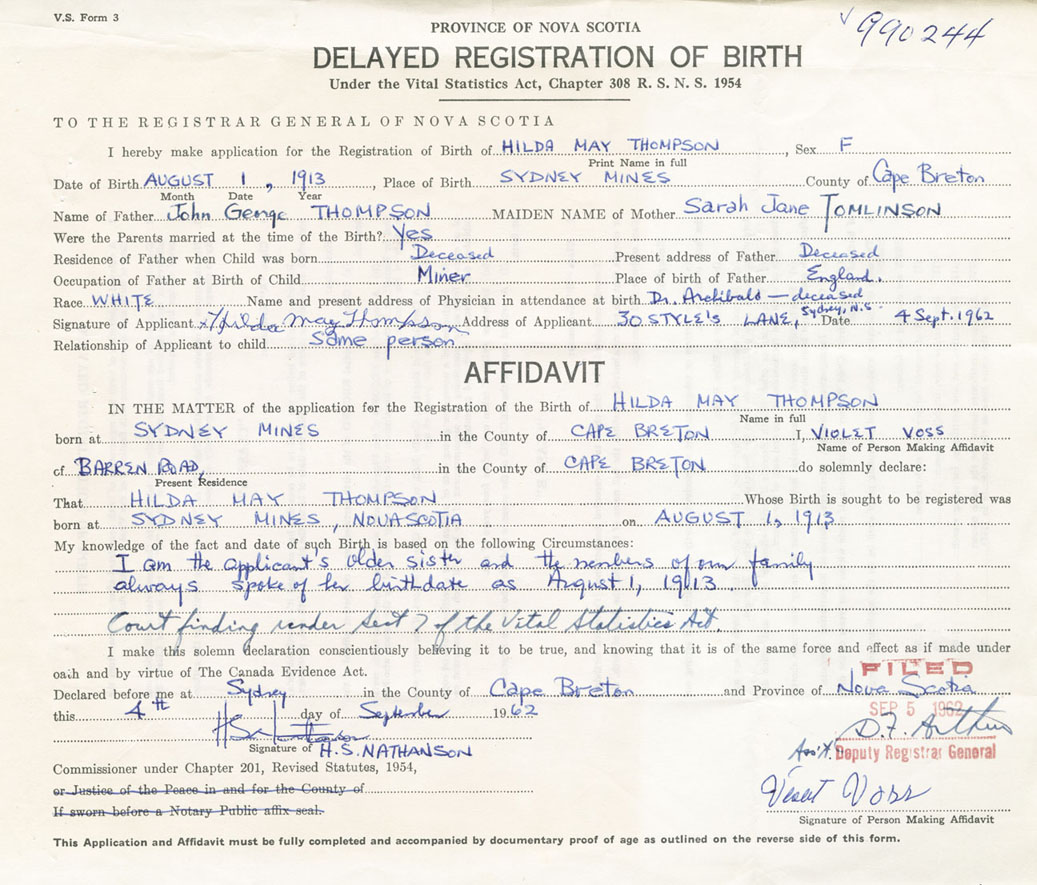 V.S. Form 3
PROVINCE OF NOVA SCOTIA
990244
DELAYED REGISTRATION OF BIRTH
Under the Vital Statistics Act, Chapter 308 R. S. N. S. 1954
TO THE REGISTRAR GENERAL OF NOVA SCOTIA
I hereby make application for the Registration of Birth of HILDA MAY THOMPSON, Sex F
Print Name in full
Date of Birth AUGUST 1, 1913, Place of Birth SYDNEY MINES County of Cape Breton
Month Date Year
Name of Father John George THOMPSON MAIDEN NAME of Mother Sarah Jane TOMLINSON
Were the Parents married at the time of the Birth? Yes
Residence of Father when Child was born Deceased Present address of Father Deceased
Occupation of Father at Birth of Child Miner Place of birth of Father England.
Race WHITE Name and present address of Physician in attendance at birth Dr. Archibald — deceased
Signature of Applicant x Hilda May Thompson Address of Applicant 30 STYLE'S LANE, Sydney, N.S. Date 4 Sept. 1962
Relationship of Applicant to child same person
AFFIDAVIT
IN THE MATTER of the application for the Registration of the Birth of HILDA MAY THOMPSON
Name in full
born at SYDNEY MINES in the County of CAPE BRETON I, VIOLET VOSS
Name of Person Making Affidavit
of BARREN ROAD, in the County of CAPE BRETON do solemnly declare:
Present Residence
That HILDA MAY THOMPSON Whose Birth is sought to be registered was
born at SYDNEY MINES, NOVA SCOTIA on AUGUST 1, 1913
My knowledge of the fact and date of such Birth is based on the following Circumstances:
I am the applicant's older sister and the members of our family
always spoke of her birthdate as August 1, 1913
Court finding under Sect 7 of the Vital Statistics Act.
I make this solemn declaration conscientiously believing it to be true, and knowing that it is of the same force and effect as if made under
oath and by virtue of The Canada Evidence Act.
FILED
Declared before me at Sydney in the County of Cape Breton and Province of Nova Scotia
this 4th day of September 1962
SEP 5 1962
D.F. Arthur
Signature of H.S. NATHANSON
Ass't. Deputy Registrar General
Commissioner under Chapter 201, Revised Statutes, 1954,
or Justice of the Peace in and for the County of
Violet Voss
If sworn before a Notary Public affix seal.
Signature of Person Making Affidavit
This Application and Affidavit must be fully completed and accompanied by documentary proof of age as outlined on the reverse side of this form.